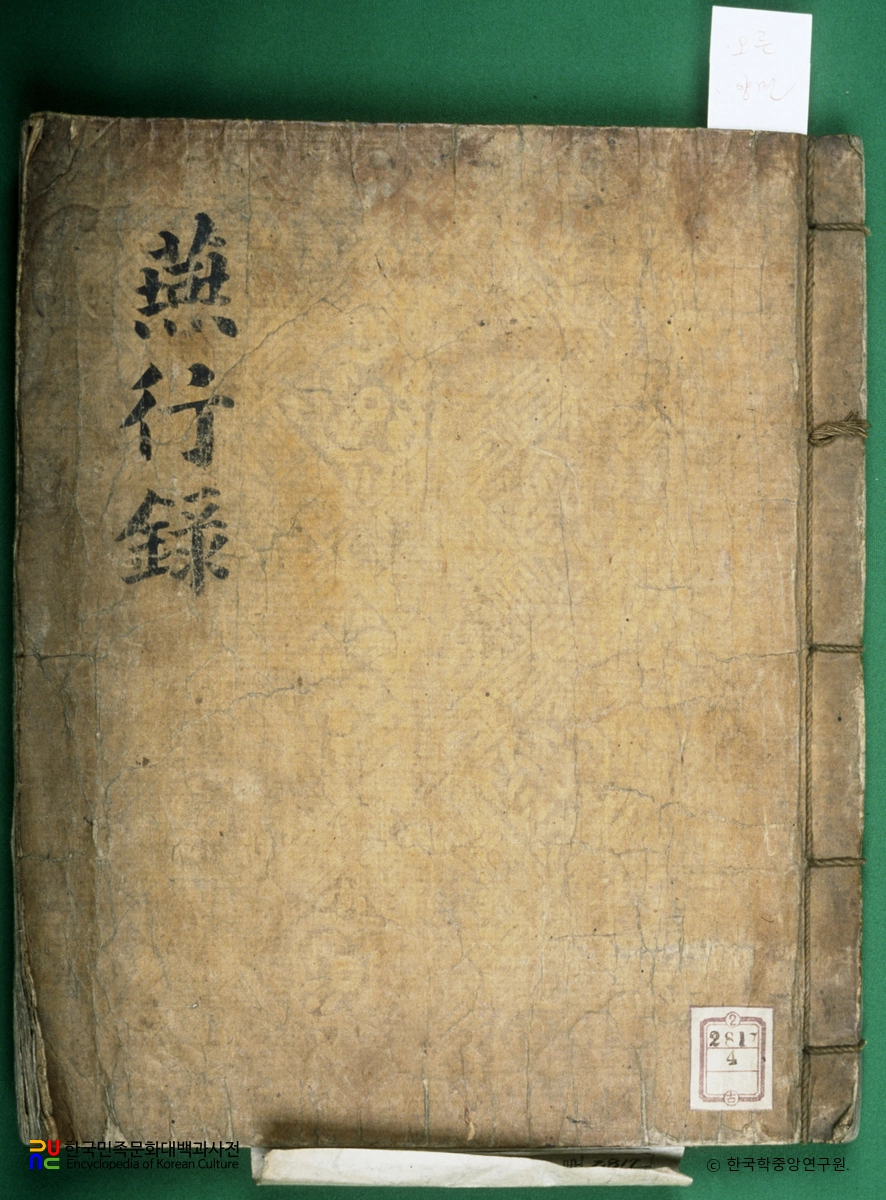 오른
燕行錄
2
2817
4
古
한국민족문화대백과사전
Encyclopedia of Korean Culture
2817
© 한국학중앙연구원